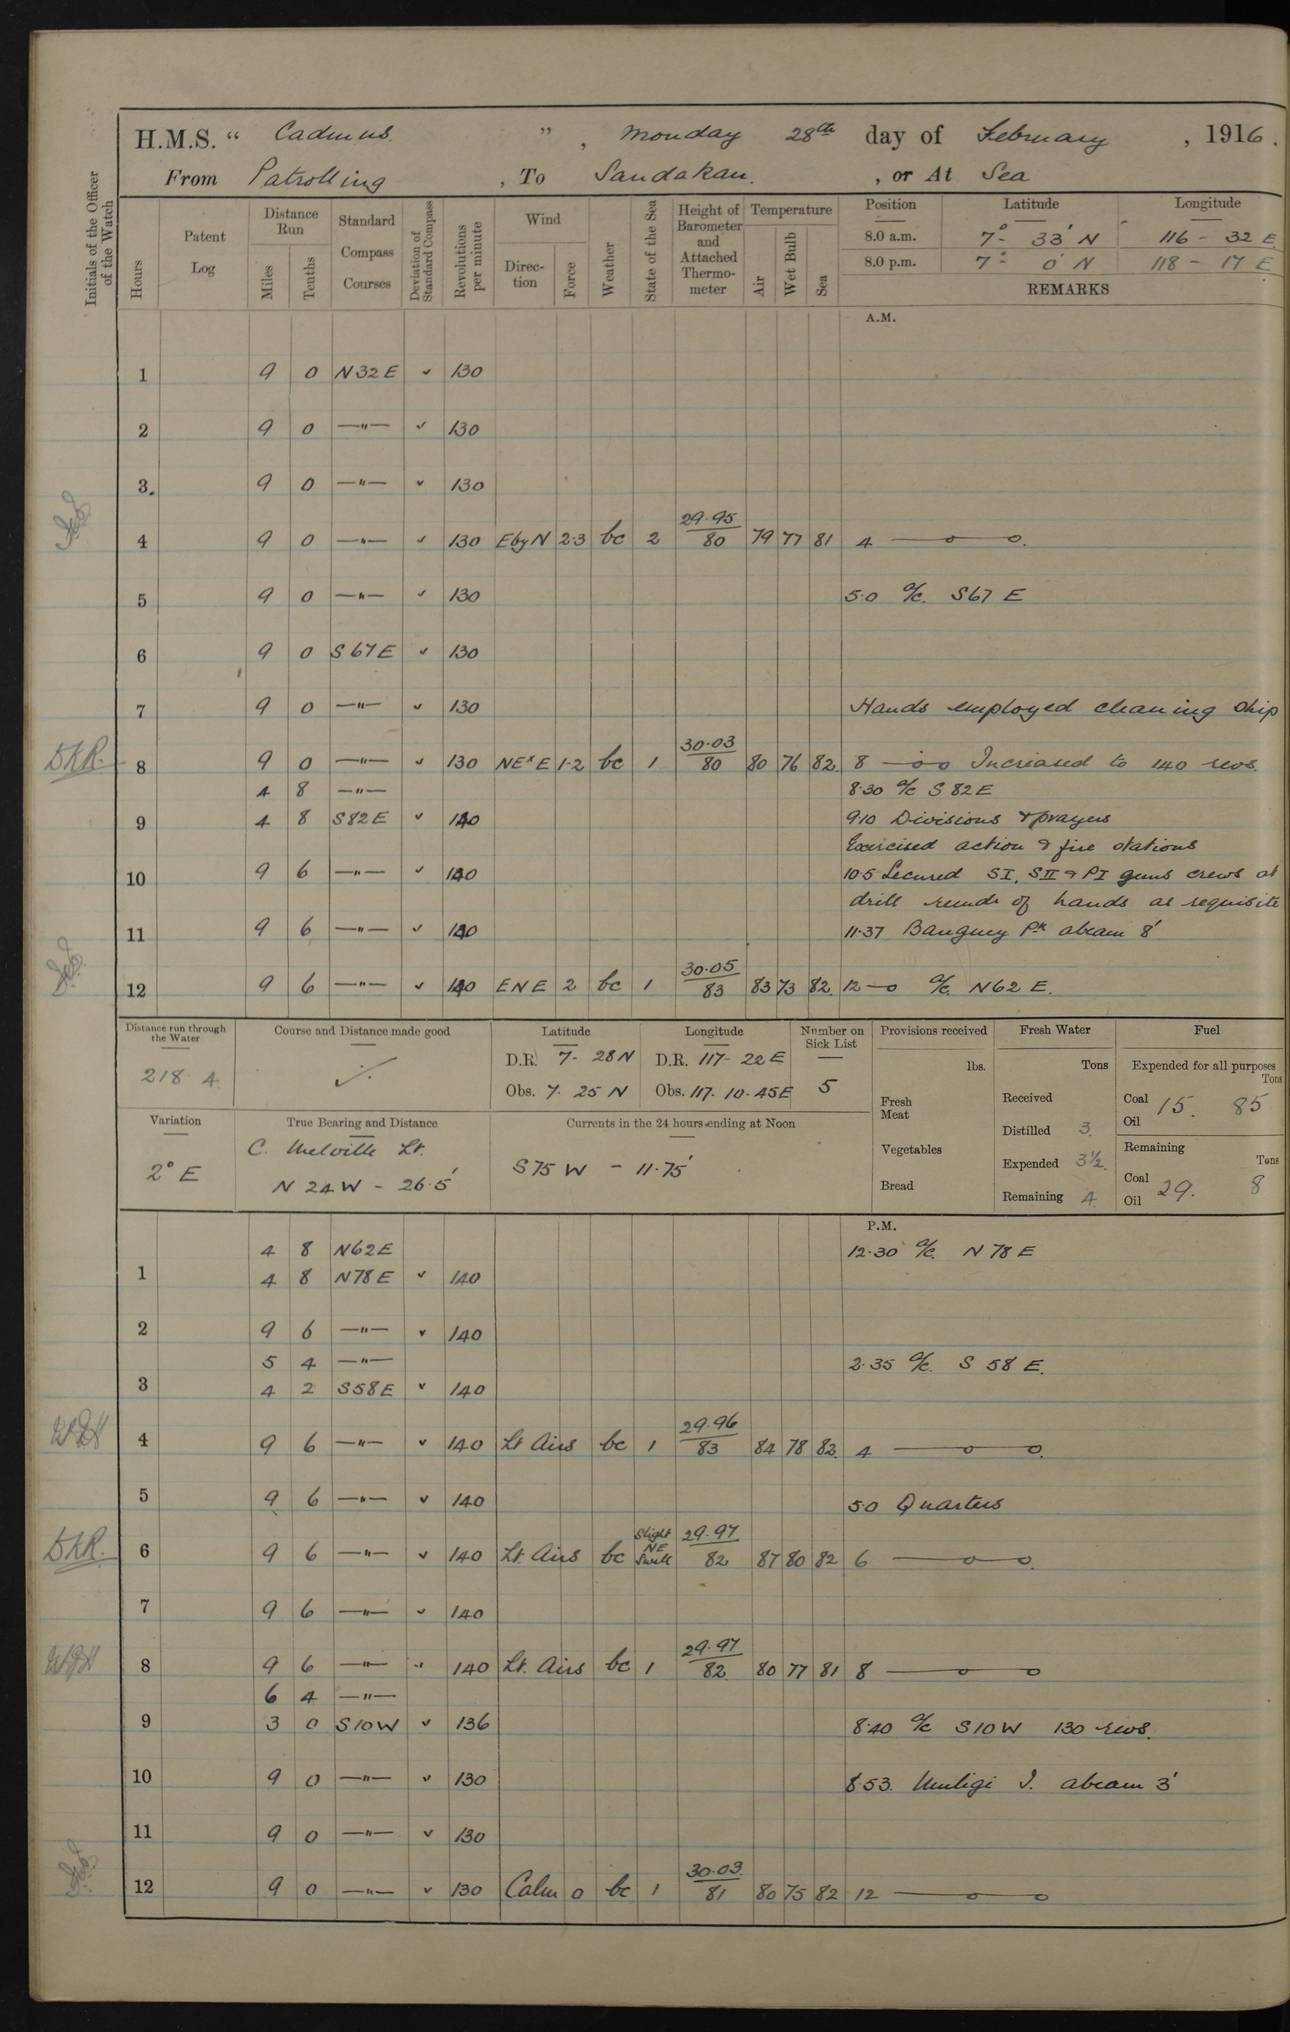 H.M.S. “ Cadmus ” , Monday 28th day of February , 1916.
From Patrolling , To Sandakan. , or At Sea
Initials of the Officer of the Watch
Hours
Patent Log
Distance Run
Miles
Tenths
Standard Compass Courses
Deviation of Standard Compass
Revolutions per minute
Wind
Direction
Force
Weather
State of the Sea
Height of Barometer and Attached Thermometer
Temperature
Air
Wet Bulb
Sea
Position Latitude Longitude
8.0 a.m. 7° - 33' N 116 - 32 E
8.0 p.m. 7° - 0' N 118 - 17 E
REMARKS
A.M.
1 9 0 N32E ✓ 130
2 9 0 —"— ✓ 130
3 9 0 —"— ✓ 130
4 9 0 —"— ✓ 130 EbyN 2.3 bc 2 29.95/80 79 77 81 4 —o—o.
5 9 0 —"— ✓ 130 5.0 a/c. S67 E
6 9 0 S67E ✓ 130
7 9 0 —"— ✓ 130 Hands employed cleaning ship
DKR. 8 9 0 —"— ✓ 130 NExE 1.2 bc 1 30.03/80 80 76 82. 8 —o—o Increased to 140 revs.
4 8 —"— 8.30 a/c S 82 E
9 4 8 S82E ✓ 140 9.10 Divisions & prayers
Exercised action & fire stations
10 9 6 —"— ✓ 140 10.5 Secured SI, SII & PI guns crews at
drill remdr of hands as requisite
11 9 6 —"— ✓ 140 11.37 Banguey Pk abeam 8'
12 9 6 —"— ✓ 140 ENE 2 bc 1 30.05/83 83 73 82. 12 —o a/c. N62 E.
Distance run through the Water
218.4
Course and Distance made good
Latitude
D.R. 7 - 28 N
Obs. 7. 25 N
Longitude
D.R. 117 - 22 E
Obs. 117. 10.45E
Number on Sick List
5
Provisions received
lbs.
Fresh Meat
Vegetables
Bread
Fresh Water
Tons
Received
Distilled 3.
Expended 3½.
Remaining 4
Fuel
Expended for all purposes
Tons
Coal 15. 85
Oil
Remaining
Tons
Coal 29. 8
Oil
Variation
2° E
True Bearing and Distance
C. Melville Lt.
N 24 W - 26.5'
Currents in the 24 hours ending at Noon
S 75 W - 11.75'
P.M.
4 8 N62E 12.30 a/c. N 78 E
1 4 8 N78E ✓ 140
2 9 6 —"— ✓ 140
5 4 —"— 2.35 a/c. S 58 E.
3 4 2 S58E ✓ 140
4 9 6 —"— ✓ 140 Lt Airs bc 1 29.96/83 84 78 82. 4 —o—o.
5 9 6 —"— ✓ 140 5.0 Quarters
DKR. 6 9 6 —"— ✓ 140 Lt. Airs bc Slight NE Swell 29.97/82 87 80 82 6 —o—o.
7 9 6 —"— ✓ 140
8 9 6 —"— ✓ 140 Lt. Airs bc 1 29.97/82. 80 77 81 8 —o—o
6 4 —"—
9 3 0 S10W ✓ 136 8.40 a/c S10W 130 revs.
10 9 0 —"— ✓ 130 8.53. I. abeam 3'
11 9 0 —"— ✓ 130
12 9 0 —"— ✓ 130 Calm 0 bc 1 30.03./81 80 75 82 12 —o—o